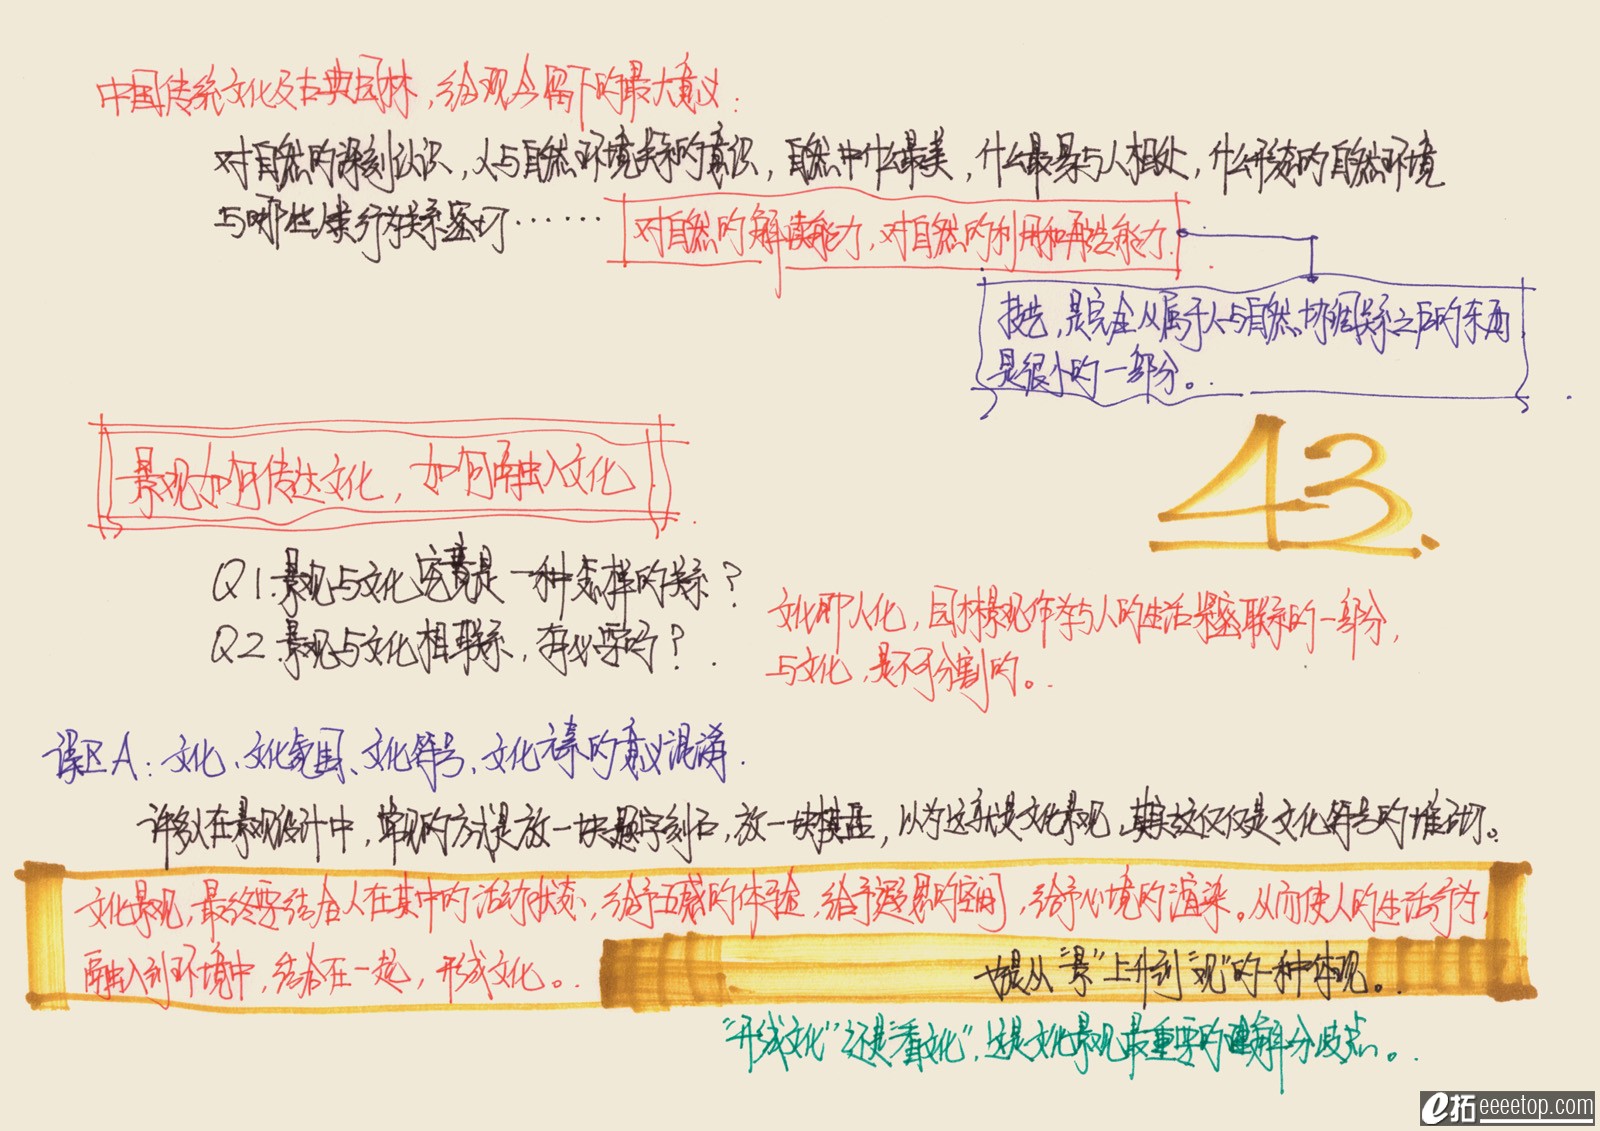 中国传统文化及古典园林，给现今留下的最大意义：
对自然的深刻认识，人与自然环境关系的意识，自然中什么最美，什么最易与人相处，什么形态的自然环境
与哪些人类行为关系密切……
对自然的解读能力，对自然的利用和再造能力.
技艺，是完全从属于人与自然协调关系之后的东西
是很小的一部分。
43.
景观如何传达文化，如何融入文化.
Q1.景观与文化究竟是一种怎样的关系？
Q2.景观与文化相联系，有必要吗？
文化即人化，园林景观作为与人的生活紧密联系的一部分，
与文化，是不可分割的。
误区A：文化、文化氛围、文化符号、文化元素的意义混淆.
许多人在景观设计中，常见的方式是放一块题字刻石，放一块棋盘，以为这就是文化景观，其实这仅仅是文化符号的堆砌。
文化景观，最终要结合人在其中的活动状态，给予五感的体验，给予遐思的空间，给予心境的渲染。从而使人的生活行为，
融入到环境中，结合在一起，形成文化。
也是从“景”上升到“观”的一种体现。
“形成文化”还是“看文化”，这是文化景观最重要的理解分歧点。
e拓 eeeetop.com